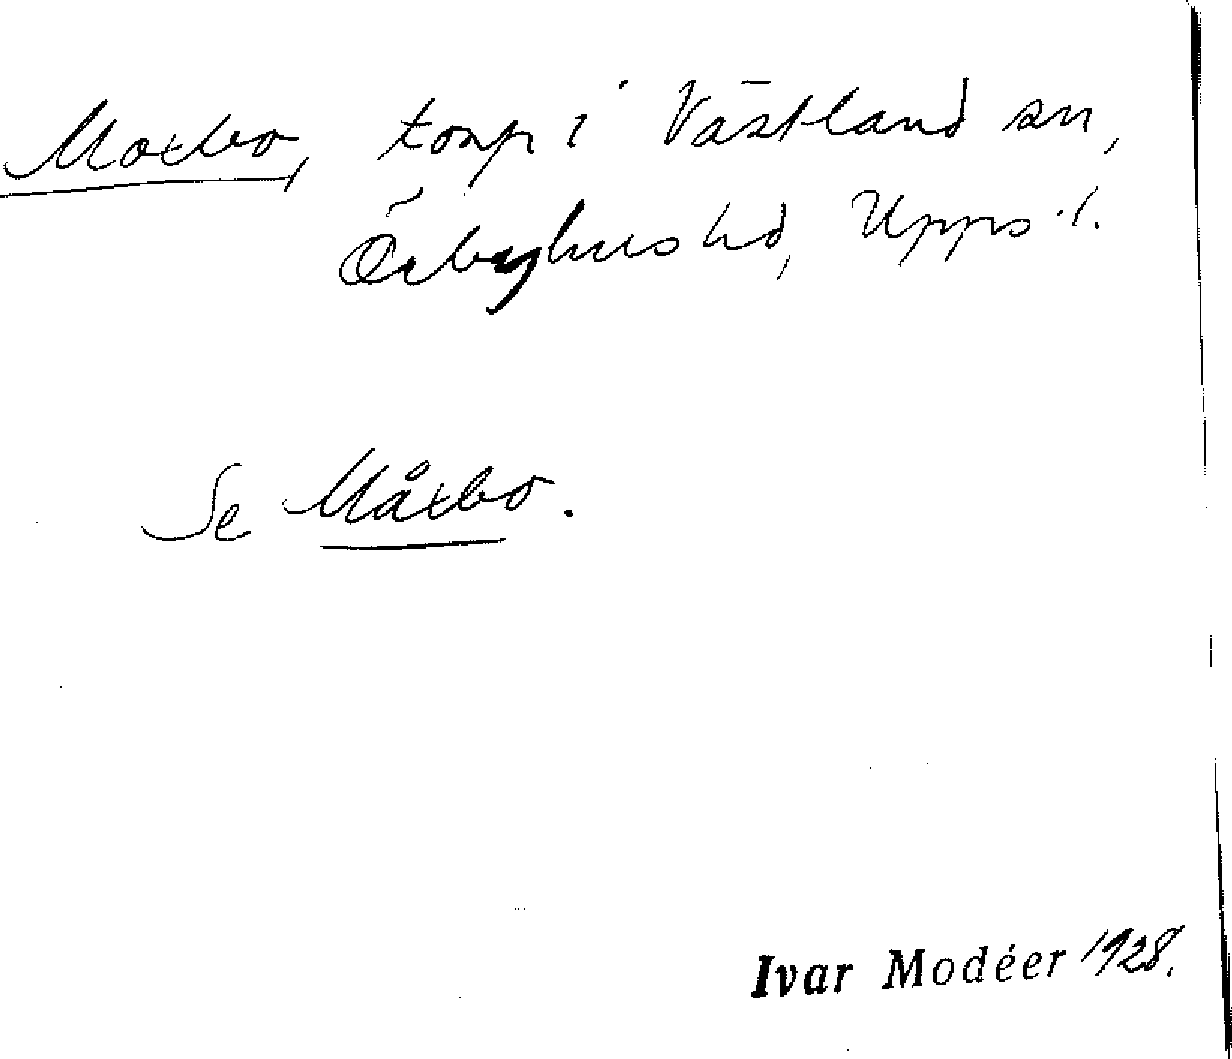 Motbo, torp i Västland sn,
Örbyhus hd, Upps. l.
Se Måtbo.
Ivar Modéer 1928.